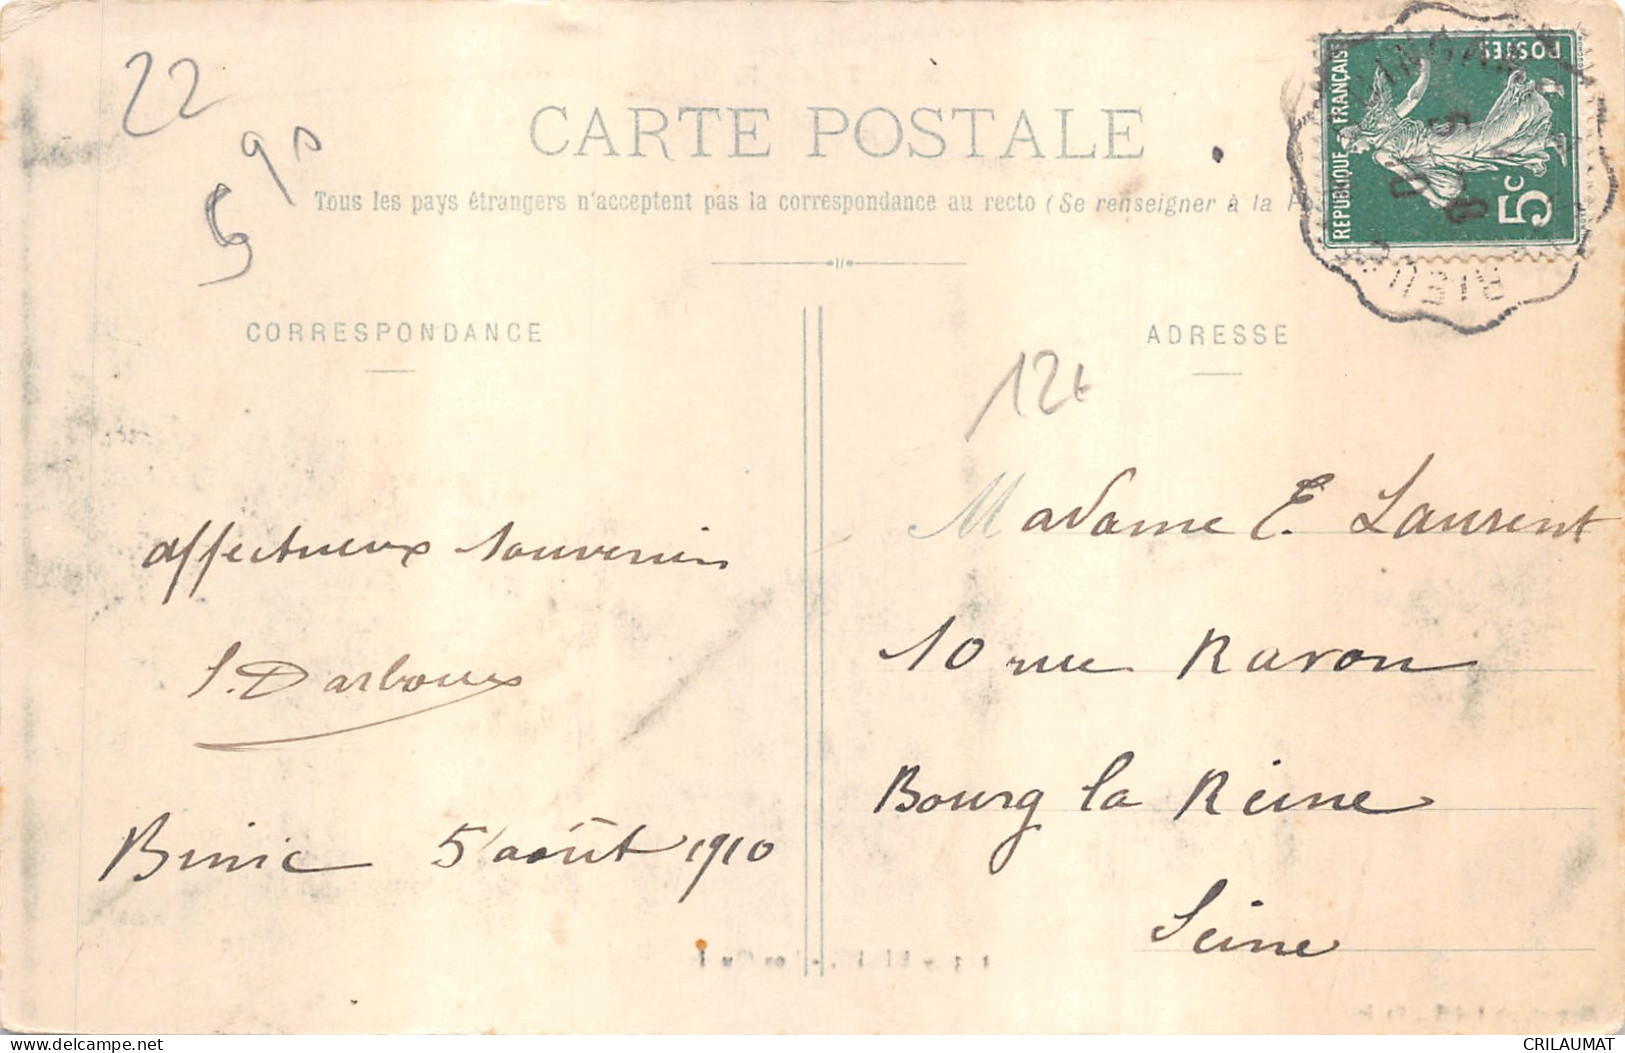 22
5 90
CARTE POSTALE
Tous les pays étrangers n'acceptent pas la correspondance au recto (Se renseigner à la
RÉPUBLIQUE FRANÇAISE
POSTES
5c
CORRESPONDANCE
ADRESSE
12t
Madame E. Laurent
10 rue Ravon
Bourg la Reine
Seine
affectueux souvenir
S. Darboux
Binic 5 août 1910
delcampe.net
CRILAUMAT